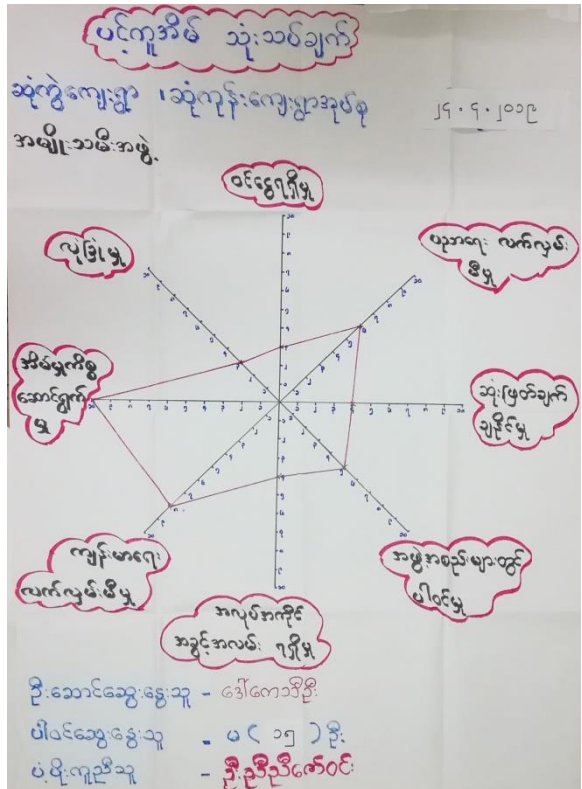 ပင့်ကူအိမ် သုံးသပ်ချက်
ဆုံကွဲကျေးရွာ ၊ ဆုံကုန်းကျေးရွာအုပ်စု ၂၄.၄.၂၀၁၉
အမျိုးသမီးအဖွဲ့
ဝင်ငွေရရှိမှု
လုံခြုံမှု
ပညာရေး လက်လှမ်း
မီမှု
အိမ်မှုကိစ္စ
ဆောင်ရွက်
မှု
ဆုံးဖြတ်ချက်
ချနိုင်မှု
ကျန်းမာရေး
လက်လှမ်းမီမှု
အဖွဲ့အစည်းများတွင်
ပါဝင်မှု
အလုပ်အကိုင်
အခွင့်အလမ်း ရရှိမှု
ဦးဆောင်ဆွေးနွေးသူ - ဒေါ်ကေသီဦး
ပါဝင်ဆွေးနွေးသူ - မ ( ၁၅ ) ဦး
ပံ့ပိုးကူညီသူ - ဦးညီညီဇော်ဝင်း